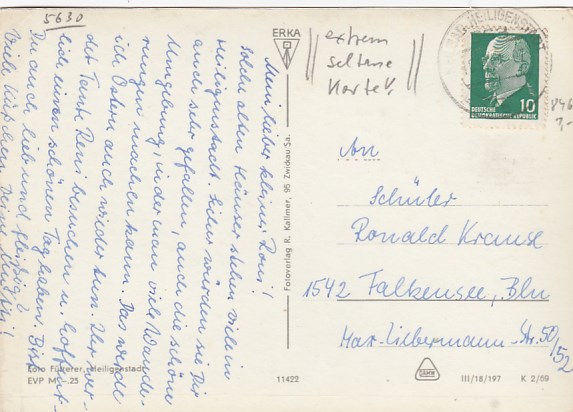 5630
Mein lieber kleiner Roni!
Solche alten Häuser stehen viele in
Heiligenstadt. Sicher würden sie Dir
auch sehr gefallen, auch die schöne
Umgebung, in der man viel Wande-
rungen machen kann. Das werde
ich Ostern auch wieder tun. Ihr wer-
det Tante Reni besuchen u. hoffent-
lich einen schönen Tag haben. Bist
Du auch lieb und fleißig?
Viele Küßchen Deine Mutti!
ERKA
extrem
seltene
Karte
BAD HEILIGENSTADT
10
DEUTSCHE
DEMOKRATISCHE REPUBLIK
846
An
Schüler
Ronald Krause
1542 Falkensee, Bln
Max-Liebermann-Str. 50/52
Fotoverlag R. Kallmer, 95 Zwickau-Sa.
Foto Fütterer, Heiligenstadt
EVP M -.25
11422
DAMW
III/18/197 K 2/69